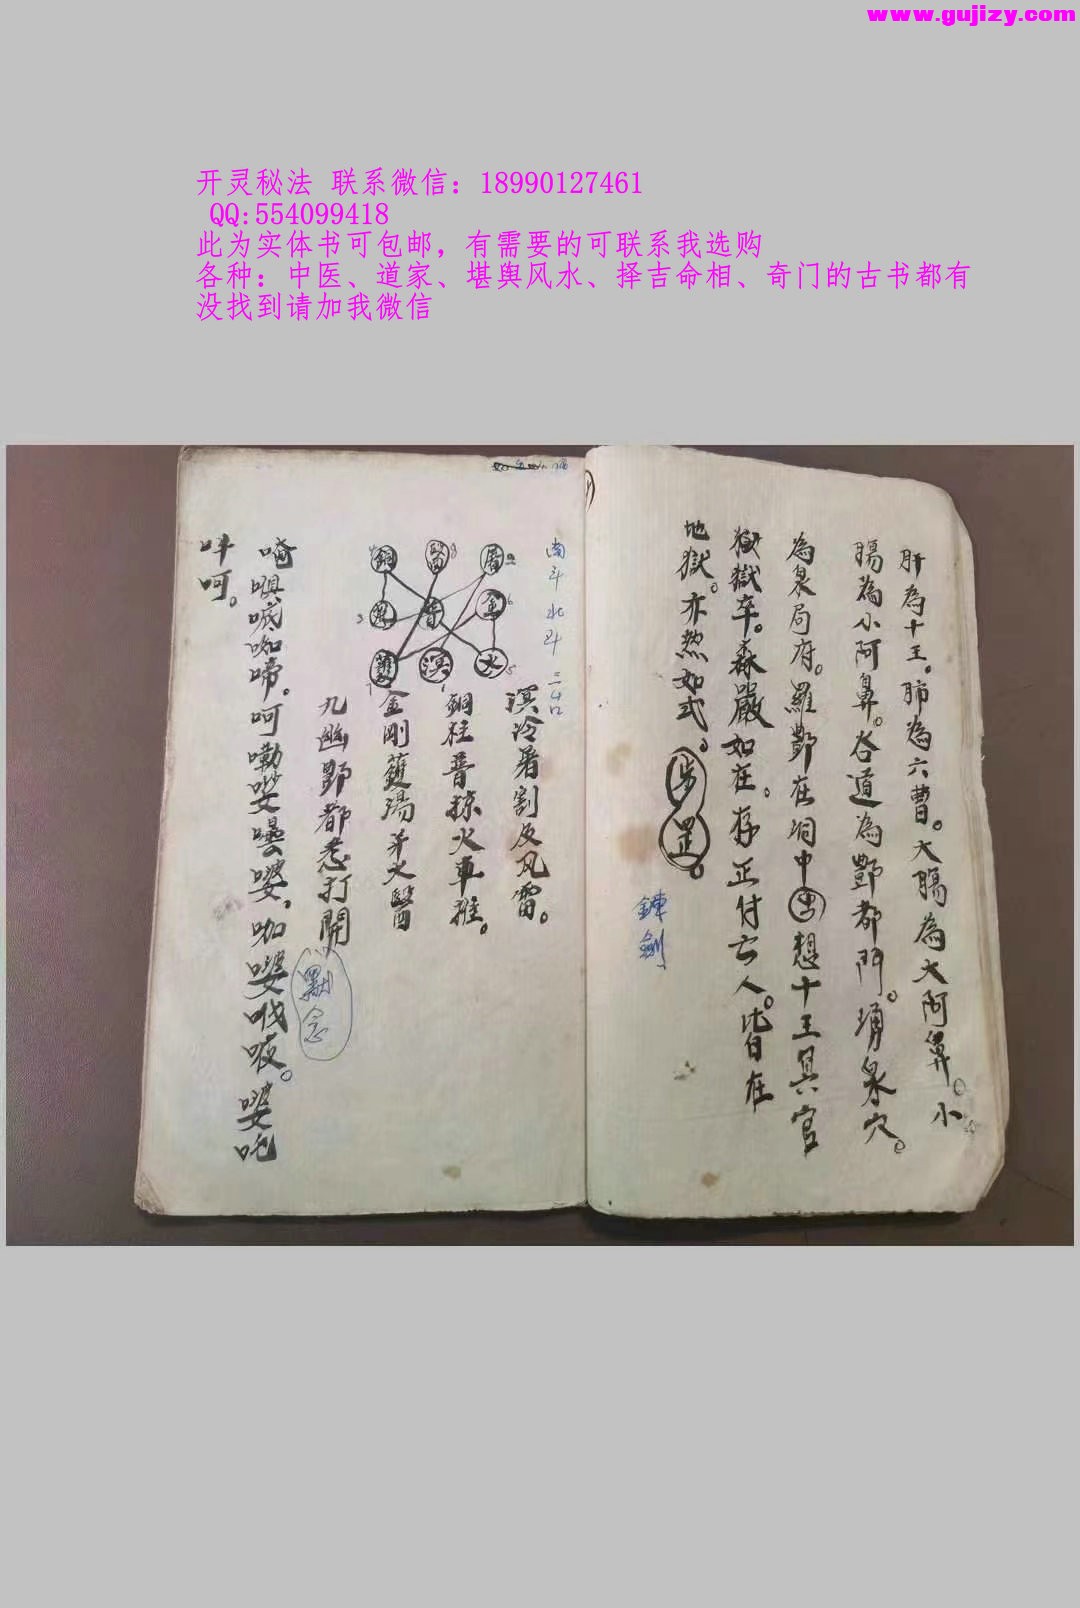 www.gujizy.com
开灵秘法 联系微信：18990127461
QQ:554099418
此为实体书可包邮，有需要的可联系我选购
各种：中医、道家、堪舆风水、择吉命相、奇门的古书都有
没找到请加我微信
肝為十王。肺為六曹。大腸為大阿鼻。小
腸為小阿鼻。谷道為酆都門。埇泉穴。
為泉局府。羅酆在洞中想十王具官
獄獄卒。森嚴如在。存正付亡人。皆在
地獄。亦然如式。步罡。
鍊劍
南斗北斗三台
溟冷暑割反风雷。
銅柱普掠火車推。
金剛鑊湯矛火醫
九幽酆都悉打開
默念
唵𠸄嘁咖啼。呵嘞㗑曇㗑，咖㗑哦吱。㗑吒
吽呵。
銅
屠
金
普
溟
火